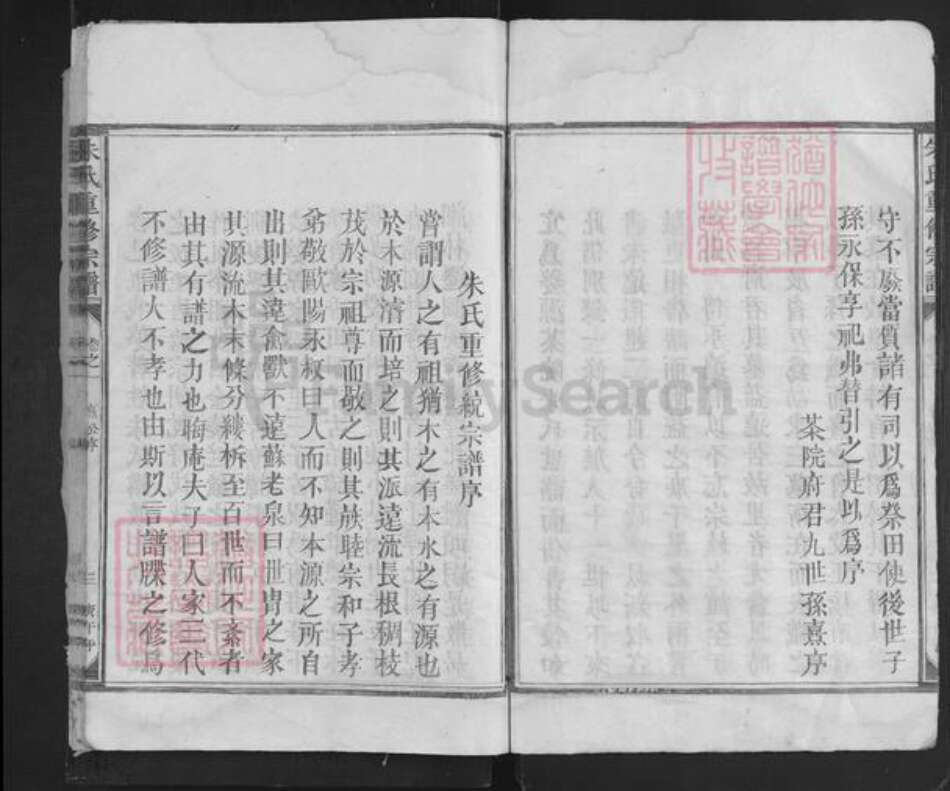 守不廢當質諸有司以爲祭田使後世子
孫永保享祀弗替引之是以爲序
茶院府君九世孫熹序
朱氏重修統宗譜序
嘗謂人之有祖猶木之有本水之有源也
於木源濬而培之則其派遠流長根稠枝
茂於宗祖尊而敬之則其族睦宗和子孝
弟敬歐陽永叔曰人而不知本源之所自
出則其違禽獸不遠蘇老泉曰世冑之家
其源流木末條分縷柝至百世而不紊者
由其有譜之力也晦庵夫子曰人家三代
不修譜大不孝也由斯以言譜牒之修爲
朱氏重修宗譜
卷之一
FamilySearch